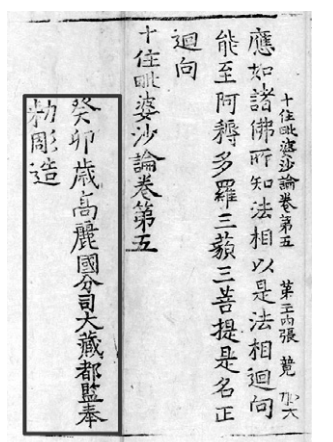 十住毗婆沙論卷第五 第 張 競
應如諸佛所知法相以是法相迴向
能至阿耨多羅三藐三菩提是名正
迴向
十住毗婆沙論卷第五
癸卯歲高麗國分司大藏都監奉
勅彫造